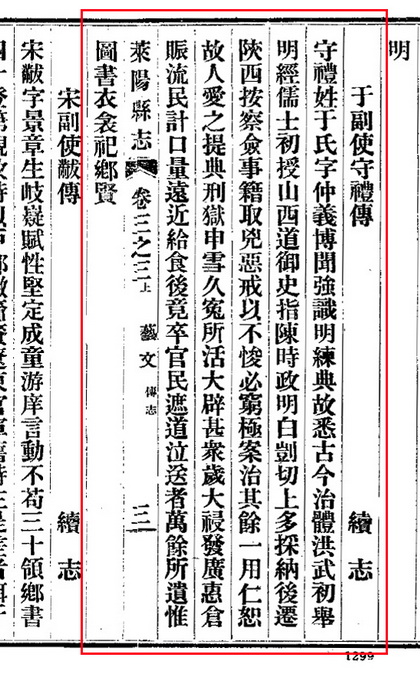 明
于副使守禮傳 續志
守禮姓于氏字仲義博聞強識明練典故悉古今治體洪武初舉
明經儒士初授山西道御史指陳時政明白剴切上多採納後遷
陝西按察僉事籍取兇惡戒以不悛必窮極案治其餘一用仁恕
故人愛之提典刑獄申雪久冤所活大辟甚衆歲大祲發廣惠倉
賑流民計口量遠近給食後竟卒官民遮道泣送者萬餘所遺惟
萊陽縣志 卷三之三上 藝文 傳志 三
圖書衣衾祀鄉賢
宋副使黻傳 續志
宋黻字景章生岐嶷賦性堅定成童游庠言動不苟三十領鄉書
1299